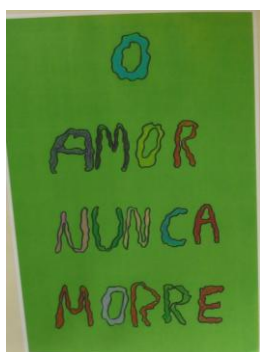 O
AMOR
NUNCA
MORRE